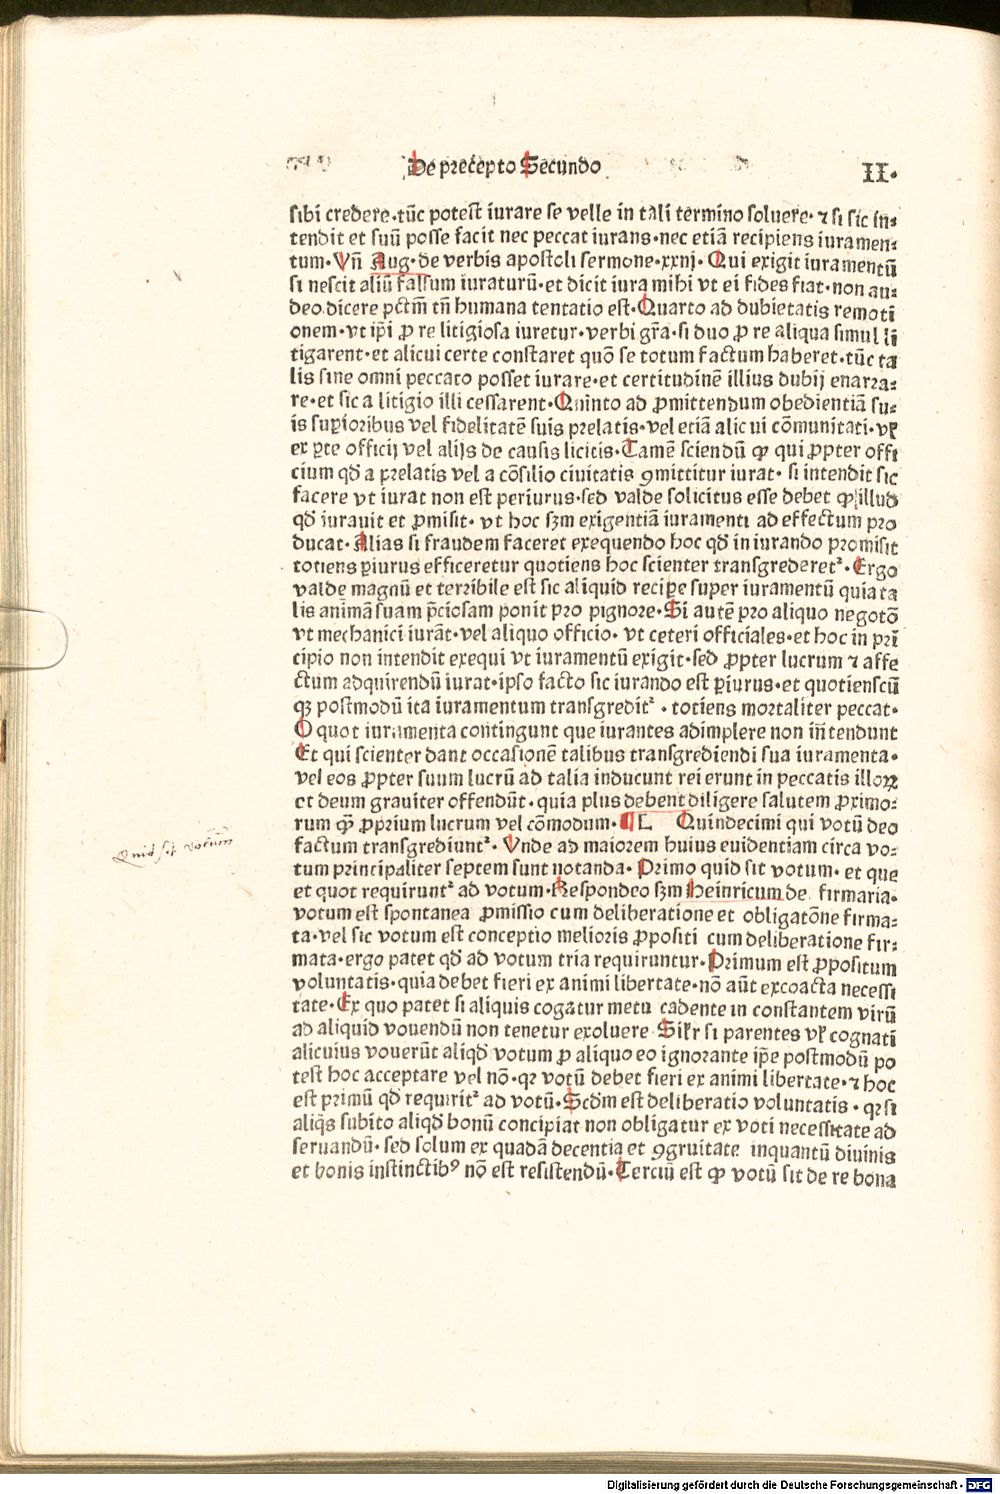 De precepto Secundo
II.
sibi credere·tūc potest iurare se velle in tali termino soluere·⁊ si sic in⸗
tendit et suū posse facit nec peccat iurans·nec etiā recipiens iuramen⸗
tum·Vn̄ Aug·de verbis apostoli sermone·xxnj·Qui exigit iuramentū
si nescit aliū falsum iuraturū·et dicit iura mihi vt ei fides fiat·non au⸗
deo dicere pctm̄ tn̄ humana tentatio est·Quarto ad dubietatis remoti
onem·vt ip̄i ꝓ re litigiosa iuretur·verbi gr̄a·si duo ꝓ re aliqua simul li
tigarent·et alicui certe constaret quō se totum factum haberet·tūc ta
lis sine omni peccato posset iurare·et certitudinē illius dubij enarra⸗
re·et sic a litigio illi cessarent·Quinto ad ꝓmittendum obedientiā su⸗
is suꝑioribus vel fidelitatē suis prelatis·vel etiā alicui cōmunitati·vꝉ
ex ꝑte officij vel alijs de causis licitis·Tamē sciendū ꝙ qui ꝓpter offi
cium qd̄ a prelatis vel a cōsilio ciuitatis ꝯmittitur iurat·si intendit sic
facere vt iurat non est periurus·sed valde solicitus esse debet ꝙ illud
qd̄ iurauit et ꝓmisit·vt hoc sꝫm exigentiā iuramenti ad effectum pro
ducat·Alias si fraudem faceret exequendo hoc qd̄ in iurando promisit
totiens ꝑiurus efficeretur quotiens hoc scienter transgrederet²·Ergo
valde magnū et terribile est sic aliquid reciꝑe super iuramentū quia ta
lis animā suam p̄ciosam ponit pro pignore·Si autē pro aliquo negotō
vt mechanici iurāt·vel aliquo officio·vt ceteri officiales·et hoc in pri
cipio non intendit exequi vt iuramentū exigit·sed ꝓpter lucrum ⁊ affe
ctum adquirendū iurat·ipso facto sic iurando est ꝑiurus·et quotienscū
qꝫ postmodū ita iuramentum transgredit²·totiens mortaliter peccat·
O quot iuramenta contingunt que iurantes adimplere non in̄tendunt
Et qui scienter dant occasionē talibus transgrediendi sua iuramenta·
vel eos ꝓpter suum lucrū ad talia inducunt rei erunt in peccatis illoꝝ
et deum grauiter offendūt·quia plus debent diligere salutem ꝓximo⸗
rum ꝙ̄ ꝓprium lucrum vel cōmodum·¶ L Quindecimi qui votū deo
factum transgrediunt²·Vnde ad maiorem huius euidentiam circa vo⸗
tum principaliter septem sunt notanda·Primo quid sit votum·et que
et quot requirunt² ad votum·Respondeo sꝫm Heinricum de firmaria·
votum est spontanea ꝓmissio cum deliberatione et obligatōne firma⸗
ta·vel sic votum est conceptio melioris ꝓpositi cum deliberatione fir⸗
mata·ergo patet qd̄ ad votum tria requiruntur·Primum est ꝓpositum
voluntatis·quia debet fieri ex animi libertate·nō aūt excoacta necessi
tate·Ex quo patet si aliquis cogatur metu cadente in constantem virū
ad aliquid vouendū non tenetur exoluere·Silꝛ si parentes vꝉ cognati
alicuius vouerūt aliqd̄ votum ꝓ aliquo eo ignorante ip̄e postmodū po
test hoc acceptare vel nō·qꝛ votū debet fieri ex animi libertate·⁊ hoc
est primū qd̄ requirit² ad votū·Scd̄m est deliberatio voluntatis·qꝛ si
aliq̄s subito aliqd̄ bonū concipiat non obligatur ex voti necessitate ad
seruandū·sed solum ex quadā decentia et ꝯgruitate inquantū diuinis
et bonis instinctibꝰ nō est resistendū·Terciū est ꝙ votū sit de re bona
Quid sit votum
Digitalisierung gefördert durch die Deutsche Forschungsgemeinschaft - DFG